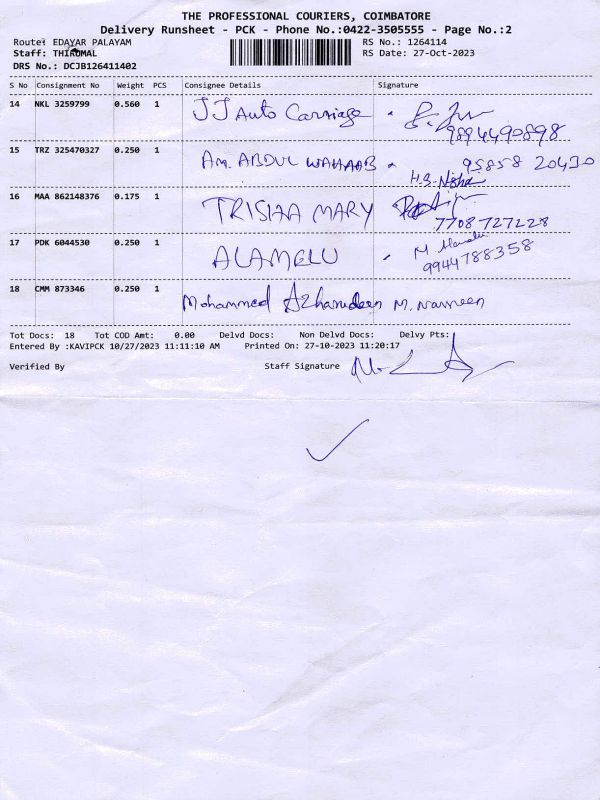 THE PROFESSIONAL COURIERS, COIMBATORE
Delivery Runsheet - PCK - Phone No.:0422-3505555 - Page No.:2
Route: EDAYAR PALAYAM RS No.: 1264114
Staff: THIRUMAL RS Date: 27-Oct-2023
DRS No.: DCJB126411402
S No Consignment No Weight PCS Consignee Details Signature
14 NKL 3259799 0.560 1 JJ Auto Carriage
9894490898
15 TRZ 325470327 0.250 1 AM. ABDUL WAHAAB 95858 20430
H.B. Nisha
16 MAA 862148376 0.175 1 TRISHA MARY
7708 727228
17 PDK 6044530 0.250 1 ALAMELU M
9944788358
18 CMM 873346 0.250 1 Mohammed Azharudeen M. Navreen
Tot Docs: 18 Tot COD Amt: 0.00 Delvd Docs: Non Delvd Docs: Delvy Pts:
Entered By :KAVIPCK 10/27/2023 11:11:10 AM Printed On: 27-10-2023 11:20:17
Verified By Staff Signature